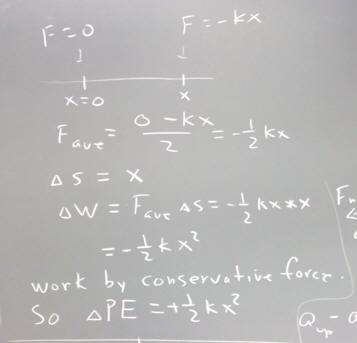 F=0 F=-kx
↓ ↓
x=0 x
Fave = (0-kx)/2 = -1/2 kx
Δs = x
ΔW = Fave Δs = -1/2 kx*x
= -1/2 kx²
work by conservative force.
So ΔPE = +1/2 kx²